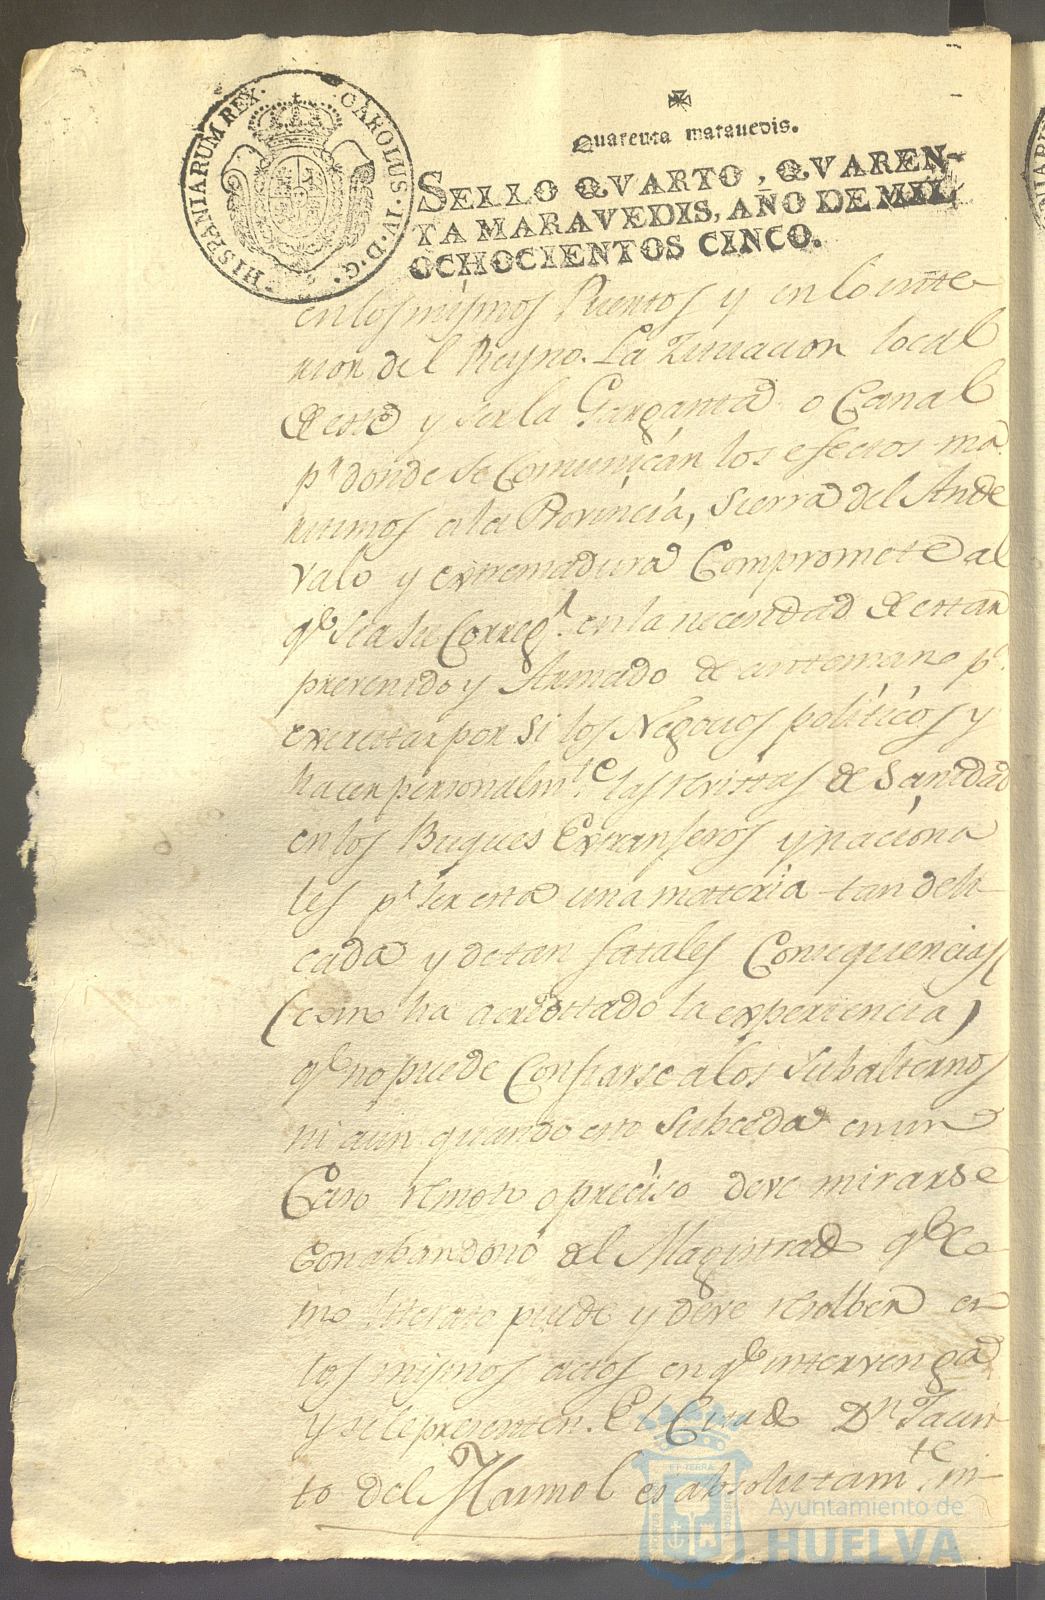 HISPANIARUM REX. CAROLUS·IV·D·G·
Quarenta maravedis.
SELLO QVARTO, QVAREN-
TA MARAVEDIS, AÑO DE MIL
OCHOCIENTOS CINCO.
en los mismos Puertos y en lo inte-
rior del Reyno. La Zituacion local
de este y ser la Garganta o Canal
pr donde se Comunícan los efectos ma
ritimos a la Províncía, Sierra del Ande
valo y extremadura Compromete al
qe sea su Corregr en la necesidad de estar
prevenido y Armado de antemano pa
executar por Si los Negocios polítícos y
hacer personalmte las revistas de Sanidad
en los Buques Extranjeros y naciona
les pr ser esta una materia tan deli-
cada y de tan fatales Consequencias
(como ha acreditado la experiencia)
qe no puede Confiarse a los Subalternos
ni aun quando esto Subceda en un
Caso remoto o precíso deve mirarse
Con abandono del Magistrado qe Co-
mo literato puede y deve resolber en
los mismos actos en qe intervenga
y se le presenten. El Citado Dn Jacin
to del Marmol es absolutamte in-
Ayuntamiento de
HUELVA